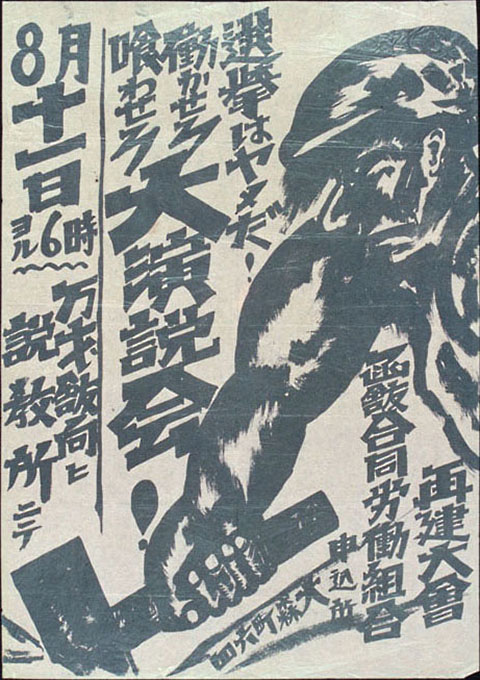 選挙はヤメだ!
働かせろ
喰わせろ
大演説会!
8月
十一日
ヨル6時
説教所ニテ
再建大會
合同労働組合
申込所
大森町六四